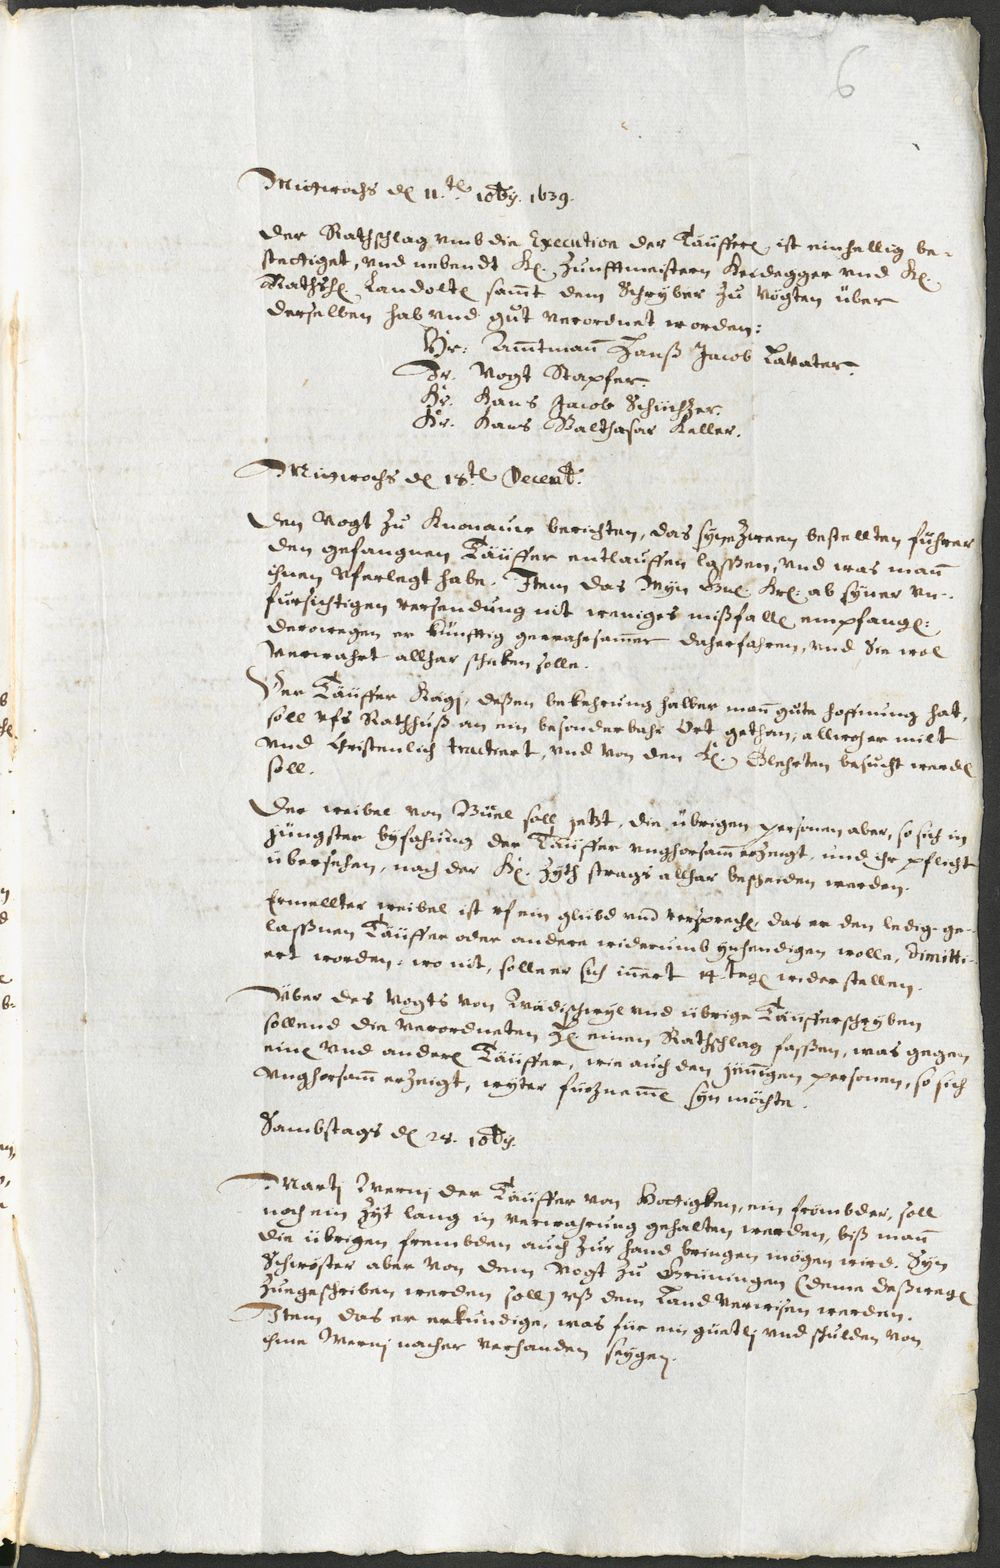 6
Mitwochs dē 11.tē 10bris. 1639.
Der Rathschlag vmb die Execution der Täufferē ist einhellig be-
stettiget, vnd nebendt Hē. Zunfftmeistern Heidegger vnd Hē.
Rathshē. Landoltē sam̄t dem Schryber zů Vögten über
derselben hab vnd gůt verordnet worden:
Hr. Am̄tman̄ Hanß Jacob Lavater.
Jr. Vogt Stapfer
Hr. Hans Jacob Schüchzer.
Hr. Hans Balthasar Keller.
Mitwochs dē 18.tē Decemb.
Dem Vogt zů Knonauw berichten, das syne zween bestellten führer
den gefangnen Täuffer entlauffen lassen, vnd was man̄
ihnen vferlegt habe. Item das Myn Gnē. Hrē. ab syner vn-
fürsichtigen versendung nit weniges mißfallē empfangē:
derowegen er künfftig gewahrsam̄er daherfahren, vnd Sie wol
verwahrt allhar schiken solle.
Der Täuffer Kägj, deßen bekehrung halber man̄ gůte hoffnung hat,
soll vfs Rathhuß an ein besonderbahr Ort gethan, allwo er milt
vnd Christenlich tractiert, vnd von den Hē. Glehrten besůcht werdē
soll.
Der weibel von Büel soll jetzt, die übrigen personen aber, so sich in
jüngster byfahung der Täuffer vnghorsam̄ erzeigt, und ihr pflicht
übersehen, nach der H. Zyth strags allhar bescheiden werden.
Ermellter weibel ist vf ein glübd vnd versprechē, das er den ledig ge-
laßnen Täuffer oder andere widerumb ynhendigen wolle, dimitti-
ert worden. wo nit, solle er sich in̄ert 14 tagē wider stellen.
Über des Vogts von Wädischwyl vnd übrige Täufferschryben
sollend die verordneten Hē. einen Rathschlag faßen, was gegen
einē vnd anderē Täuffer, wie auch den jenigen personen, so sich
vnghorsam̄ erzeigt, wyter fürzunemmē syn möchte.
Sambstags dē 28. 10bris.
Martj Wernj der Täuffer von Hottigken, ein frömbder, soll
noch ein Zyt lang in verwahrung gehalten werden, biß man̄
die übrigen frembden auch zur hand bringen mögen wird. Syn
Schwöster aber von dem Vogt zů Grüningen (deme deßwegē
zůgeschriben werden soll) vß dem Land verwisen werden.
Item das er erkundige, was für ein güetlj vnd schulden von
ihme Wernj nacher verhanden seygen.